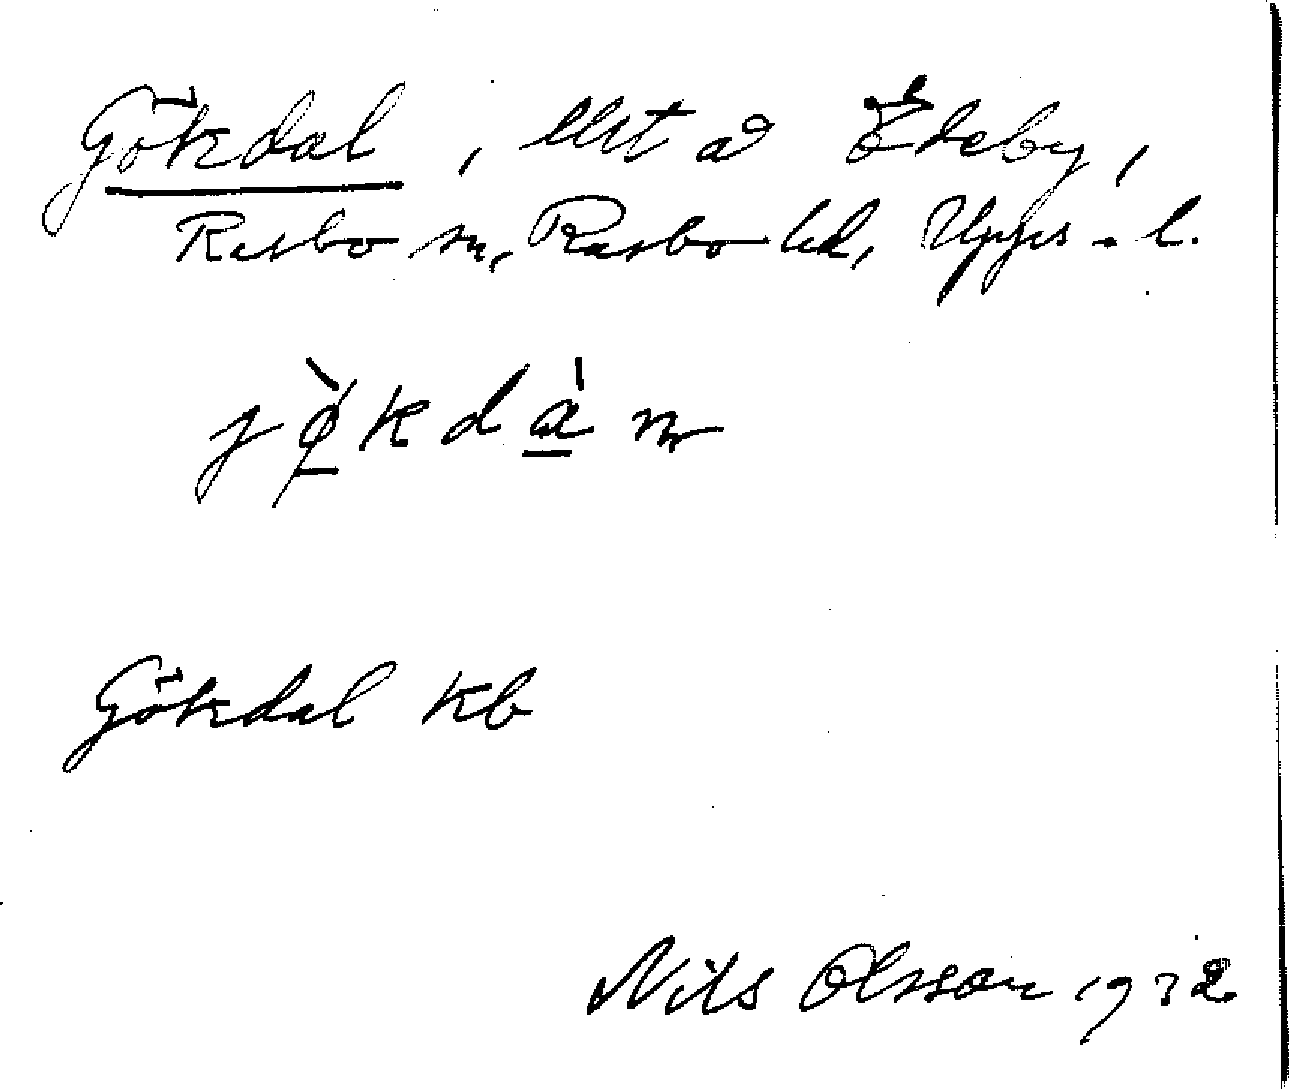 Gökdal, lht å Edeby,
Rasbo sn, Rasbo hd, Upps. l.
jø̀kdàn
Gökdal kb
Nils Olsson 1932